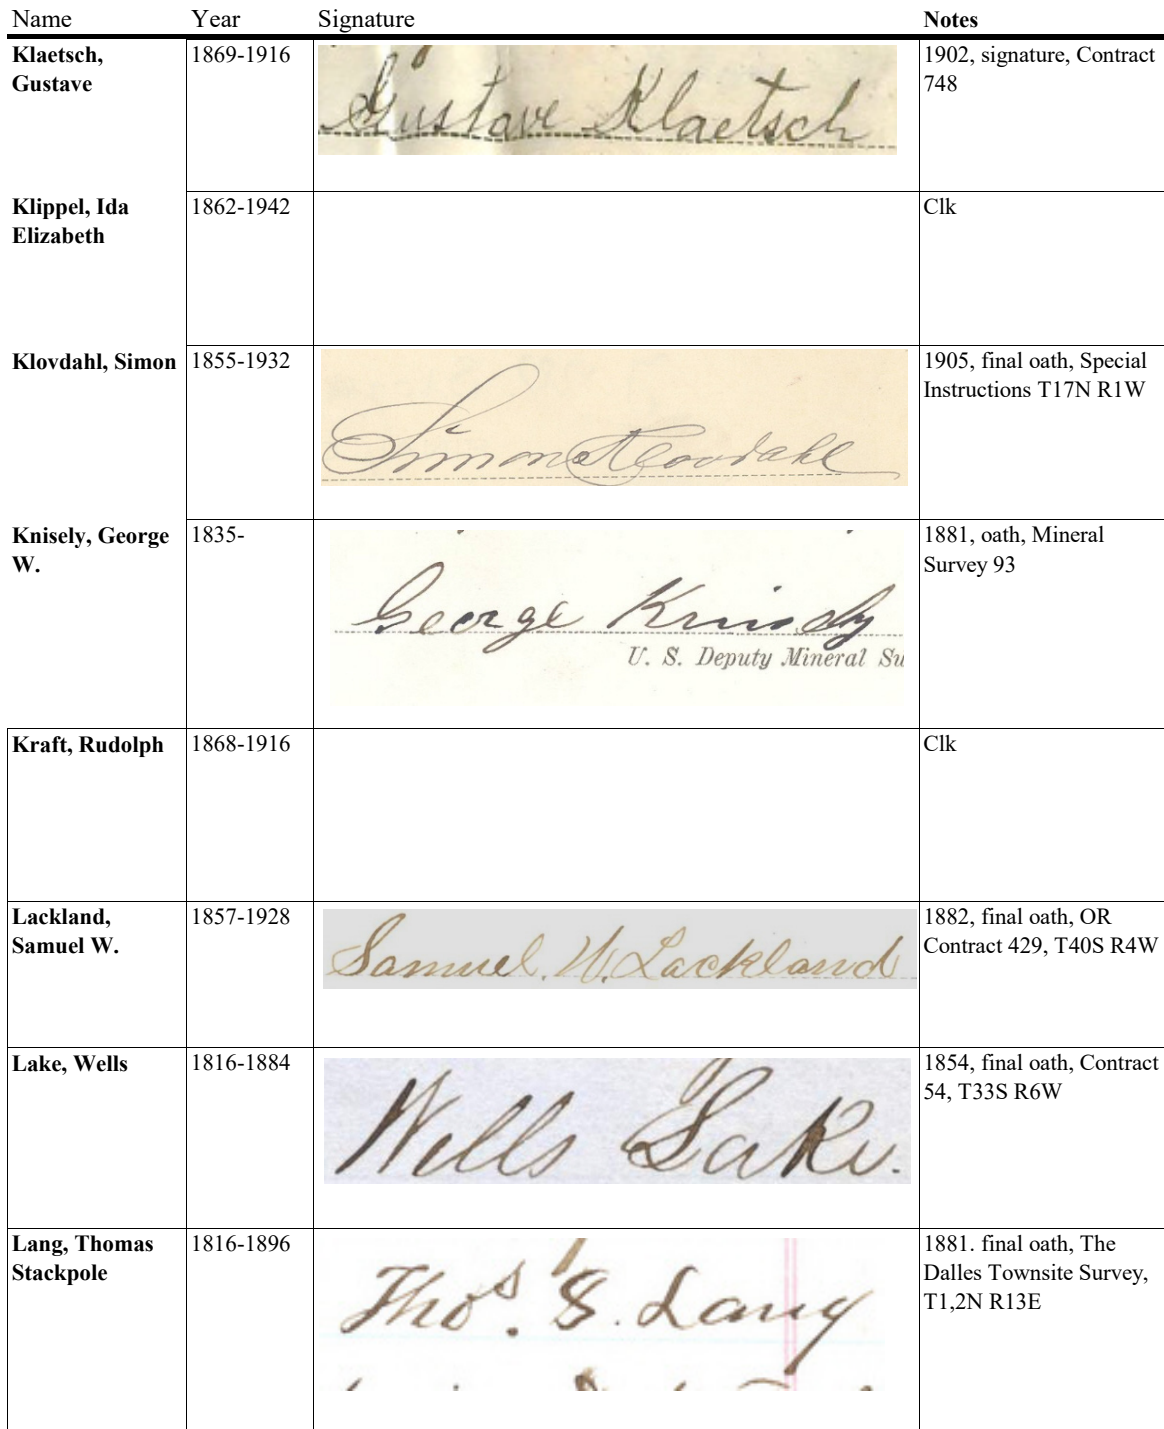 Name Year Signature Notes
Klaetsch, 1869-1916 Gustave Klaetsch 1902, signature, Contract
Gustave 748
Klippel, Ida 1862-1942 Clk
Elizabeth
Klovdahl, Simon 1855-1932 Simon Klovdahl 1905, final oath, Special
Instructions T17N R1W
Knisely, George 1835- George Knisely 1881, oath, Mineral
W. Survey 93
U. S. Deputy Mineral Su
Kraft, Rudolph 1868-1916 Clk
Lackland, 1857-1928 Samuel. W. Lackland 1882, final oath, OR
Samuel W. Contract 429, T40S R4W
Lake, Wells 1816-1884 Wells Lake. 1854, final oath, Contract
54, T33S R6W
Lang, Thomas 1816-1896 Thos. S. Lang 1881. final oath, The
Stackpole Dalles Townsite Survey,
T1,2N R13E